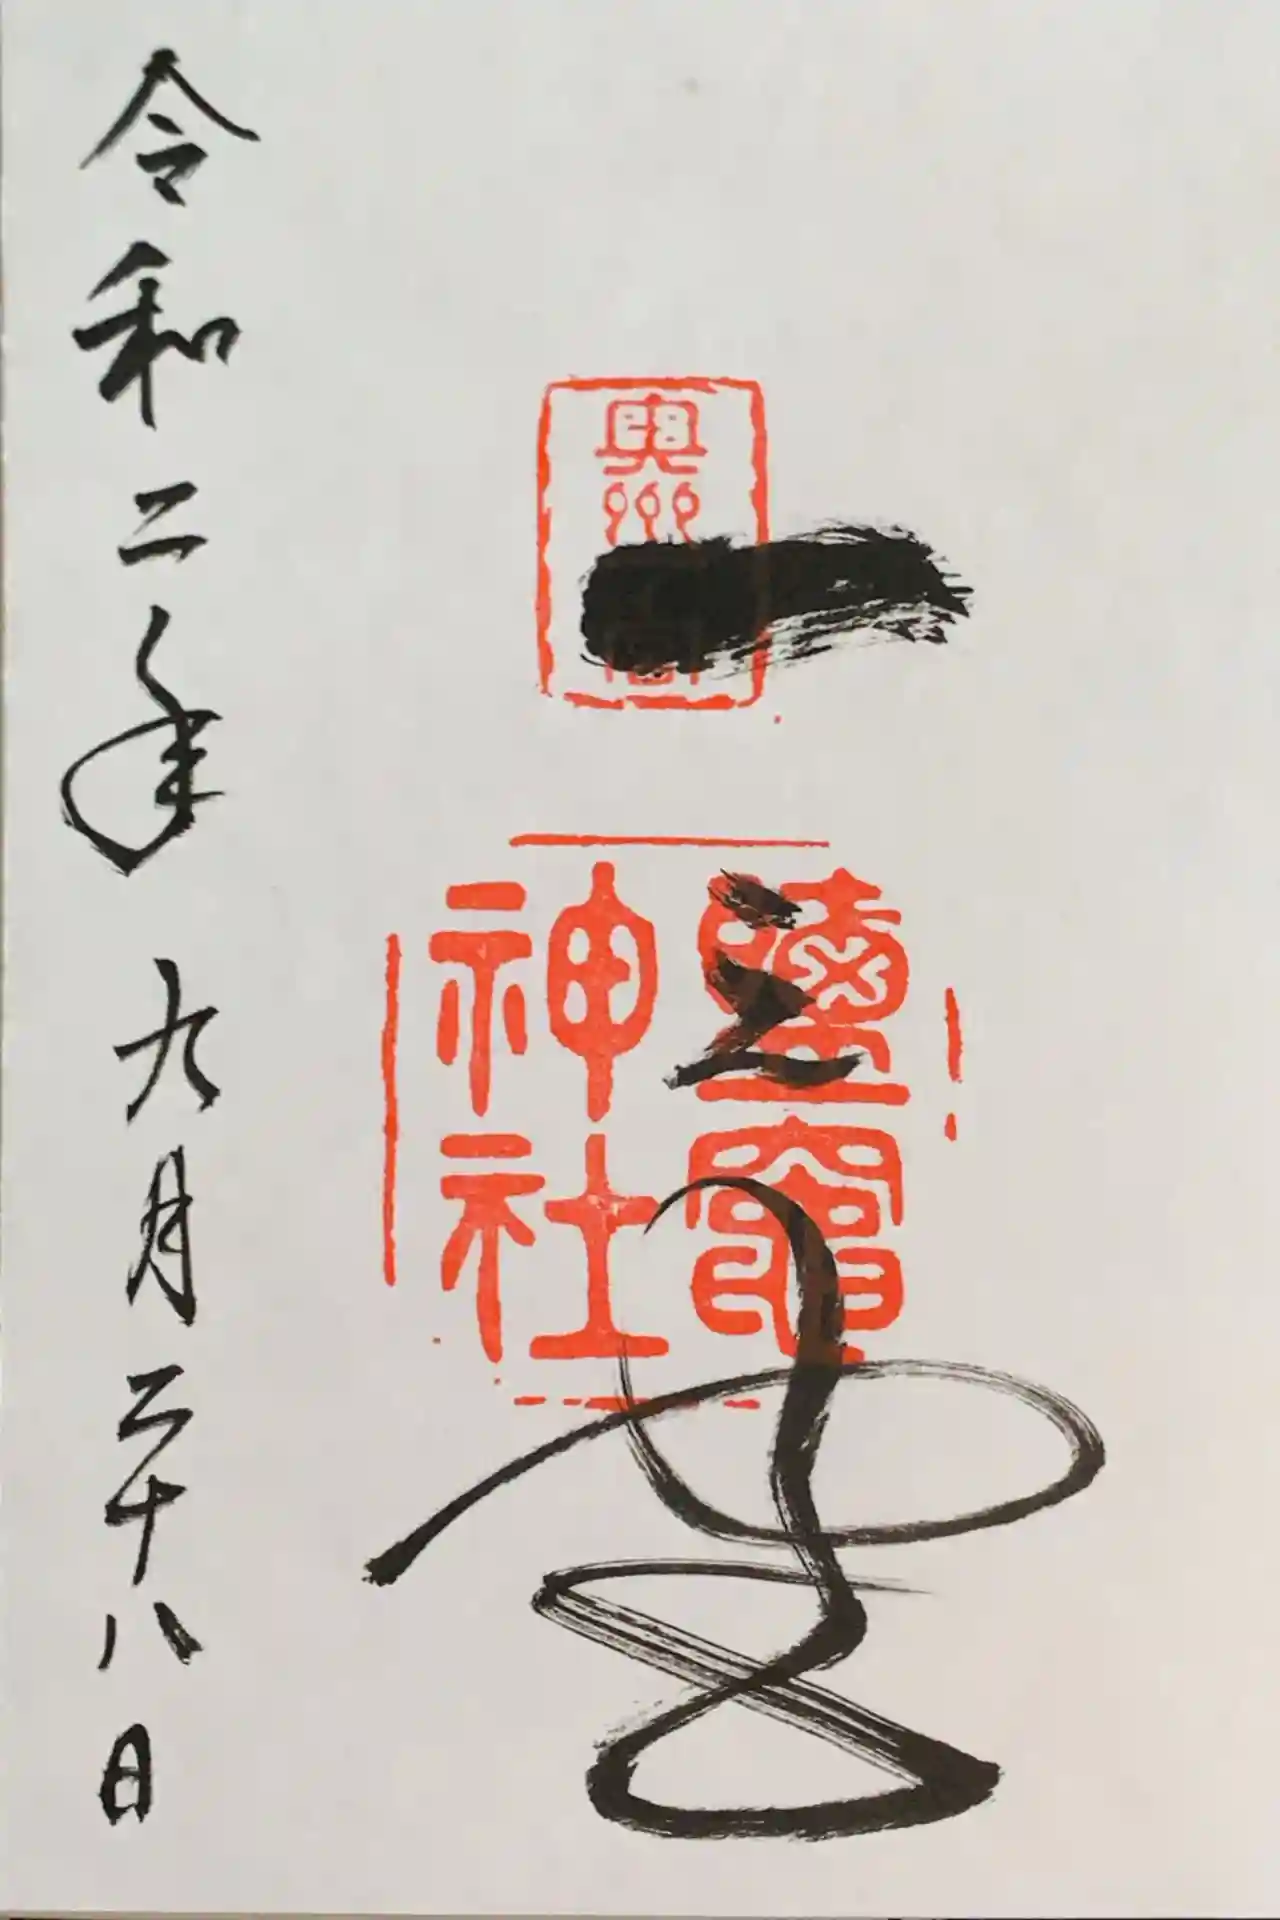 奥州
一之宮
鹽竈
神社
令和二年九月二十八日